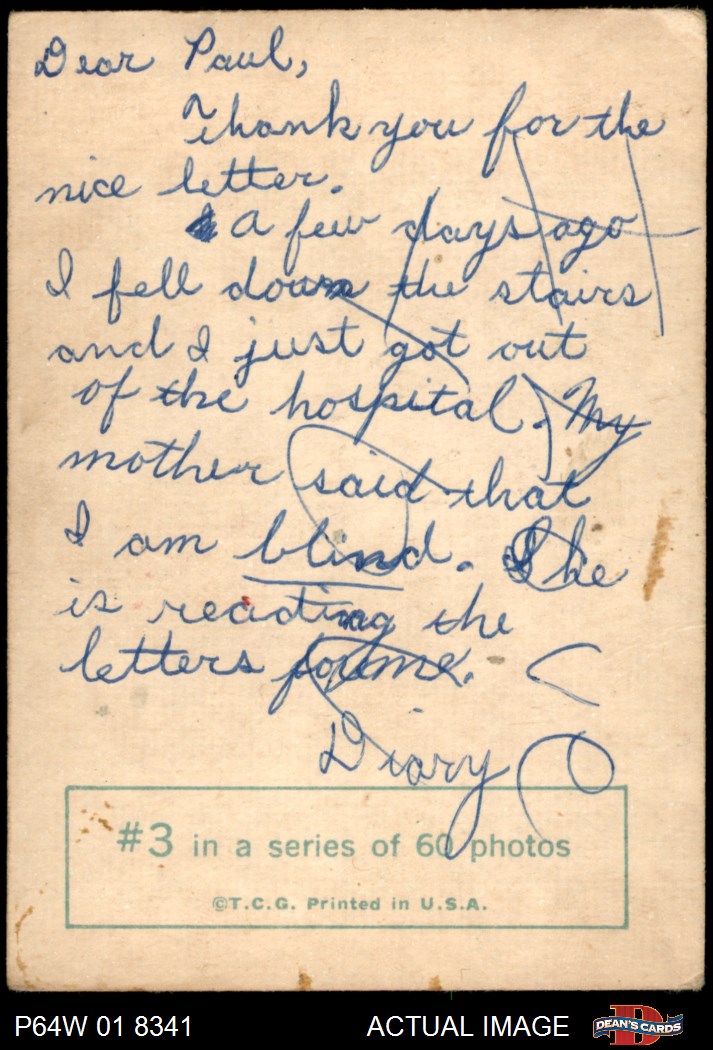 Dear Paul,
Thank you for the
nice letter.
A few days ago
I fell down the stairs
and I just got out
of the hospital. My
mother said that
I am blind. She
is reading the
letters for me.
Diary
#3 in a series of 60 photos
©T.C.G. Printed in U.S.A.
P64W 01 8341 ACTUAL IMAGE DEAN'S CARDS